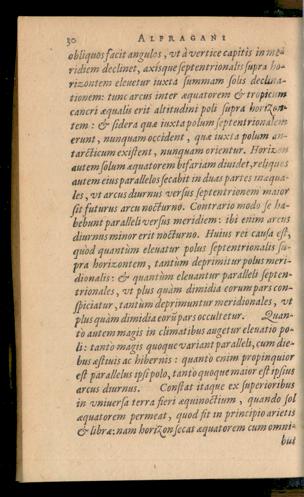 30 ALFRAGANI
obliquos facit angulos, vt à vertice capitis in meridiem
ridiem declinet, axisque septentrionalis supra ho-
rizontem eleuetur iuxta summam solis declina-
tionem: tunc arcus inter æquatorem & tropicum
cancri æqualis erit altitudini poli supra horizon-
tem: & sidera quæ iuxta polum septentrionalem
erunt, nunquam occident, quæ iuxta polum an-
tarcticum existent, nunquam orientur. Horizon
autem solum æquatorem bifariam diuidet, reliquos
autem eius parallelos secabit in duas partes inæqua-
les, vt arcus diurnus versus septentrionem maior
sit futurus arcu nocturno. Contrario modo se ha-
bebunt paralleli versus meridiem: ibi enim arcus
diurnus minor erit nocturno. Huius rei causa est,
quòd quantùm eleuatur polus septentrionalis su-
pra horizontem, tantùm deprimitur polus meri-
dionalis: & quantùm eleuantur paralleli septen-
trionales, vt plus quàm dimidia eorum pars con-
spiciatur, tantùm deprimuntur meridionales, vt
plus quàm dimidia eorũ pars occultetur. Quan-
to autem magis in climatibus augetur eleuatio po-
li: tanto magis quoque variant paralleli, cum die-
bus æstiuis ac hibernis: quanto enim propinquior
est parallelus ipsi polo, tanto quoque maior est ipsius
arcus diurnus. Constat itaque ex superioribus
in vniuersa terra fieri æquinoctium, quando sol
æquatorem permeat, quod fit in principio arietis
& libræ: nam horizon secat æquatorem cum omni-
bus